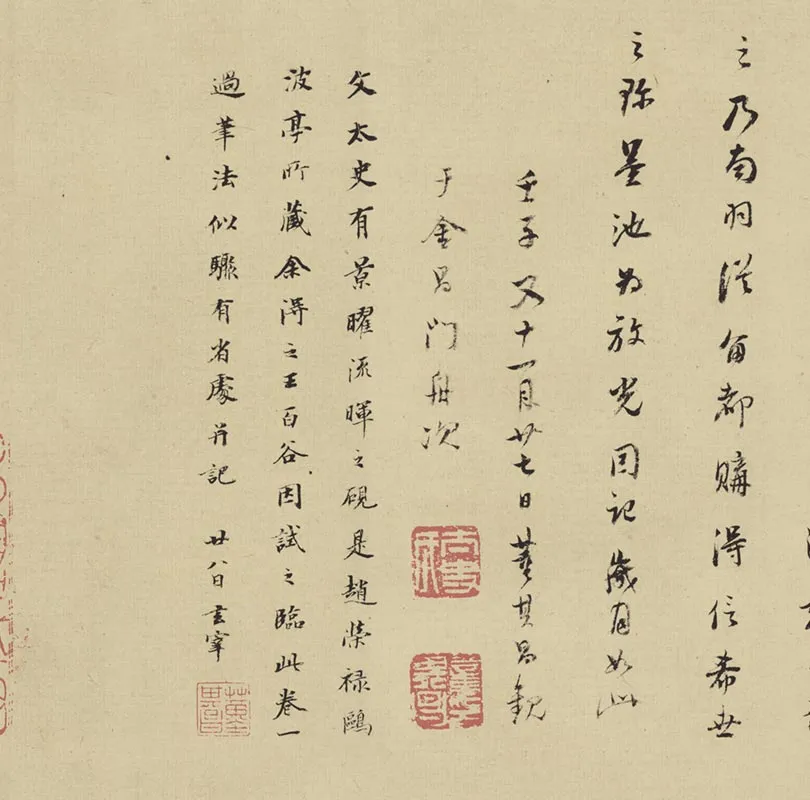 之乃南羽從留都購得信希世
之珍墨池為放光因記歲月如此
壬子又十一月廿七日董其昌觀
于金昌門舟次
文太史有景曜流暉之硯是趙榮祿鷗
波亭所藏余得之王百谷因試之臨此卷一
過筆法似驟有省處并記 廿八日玄宰